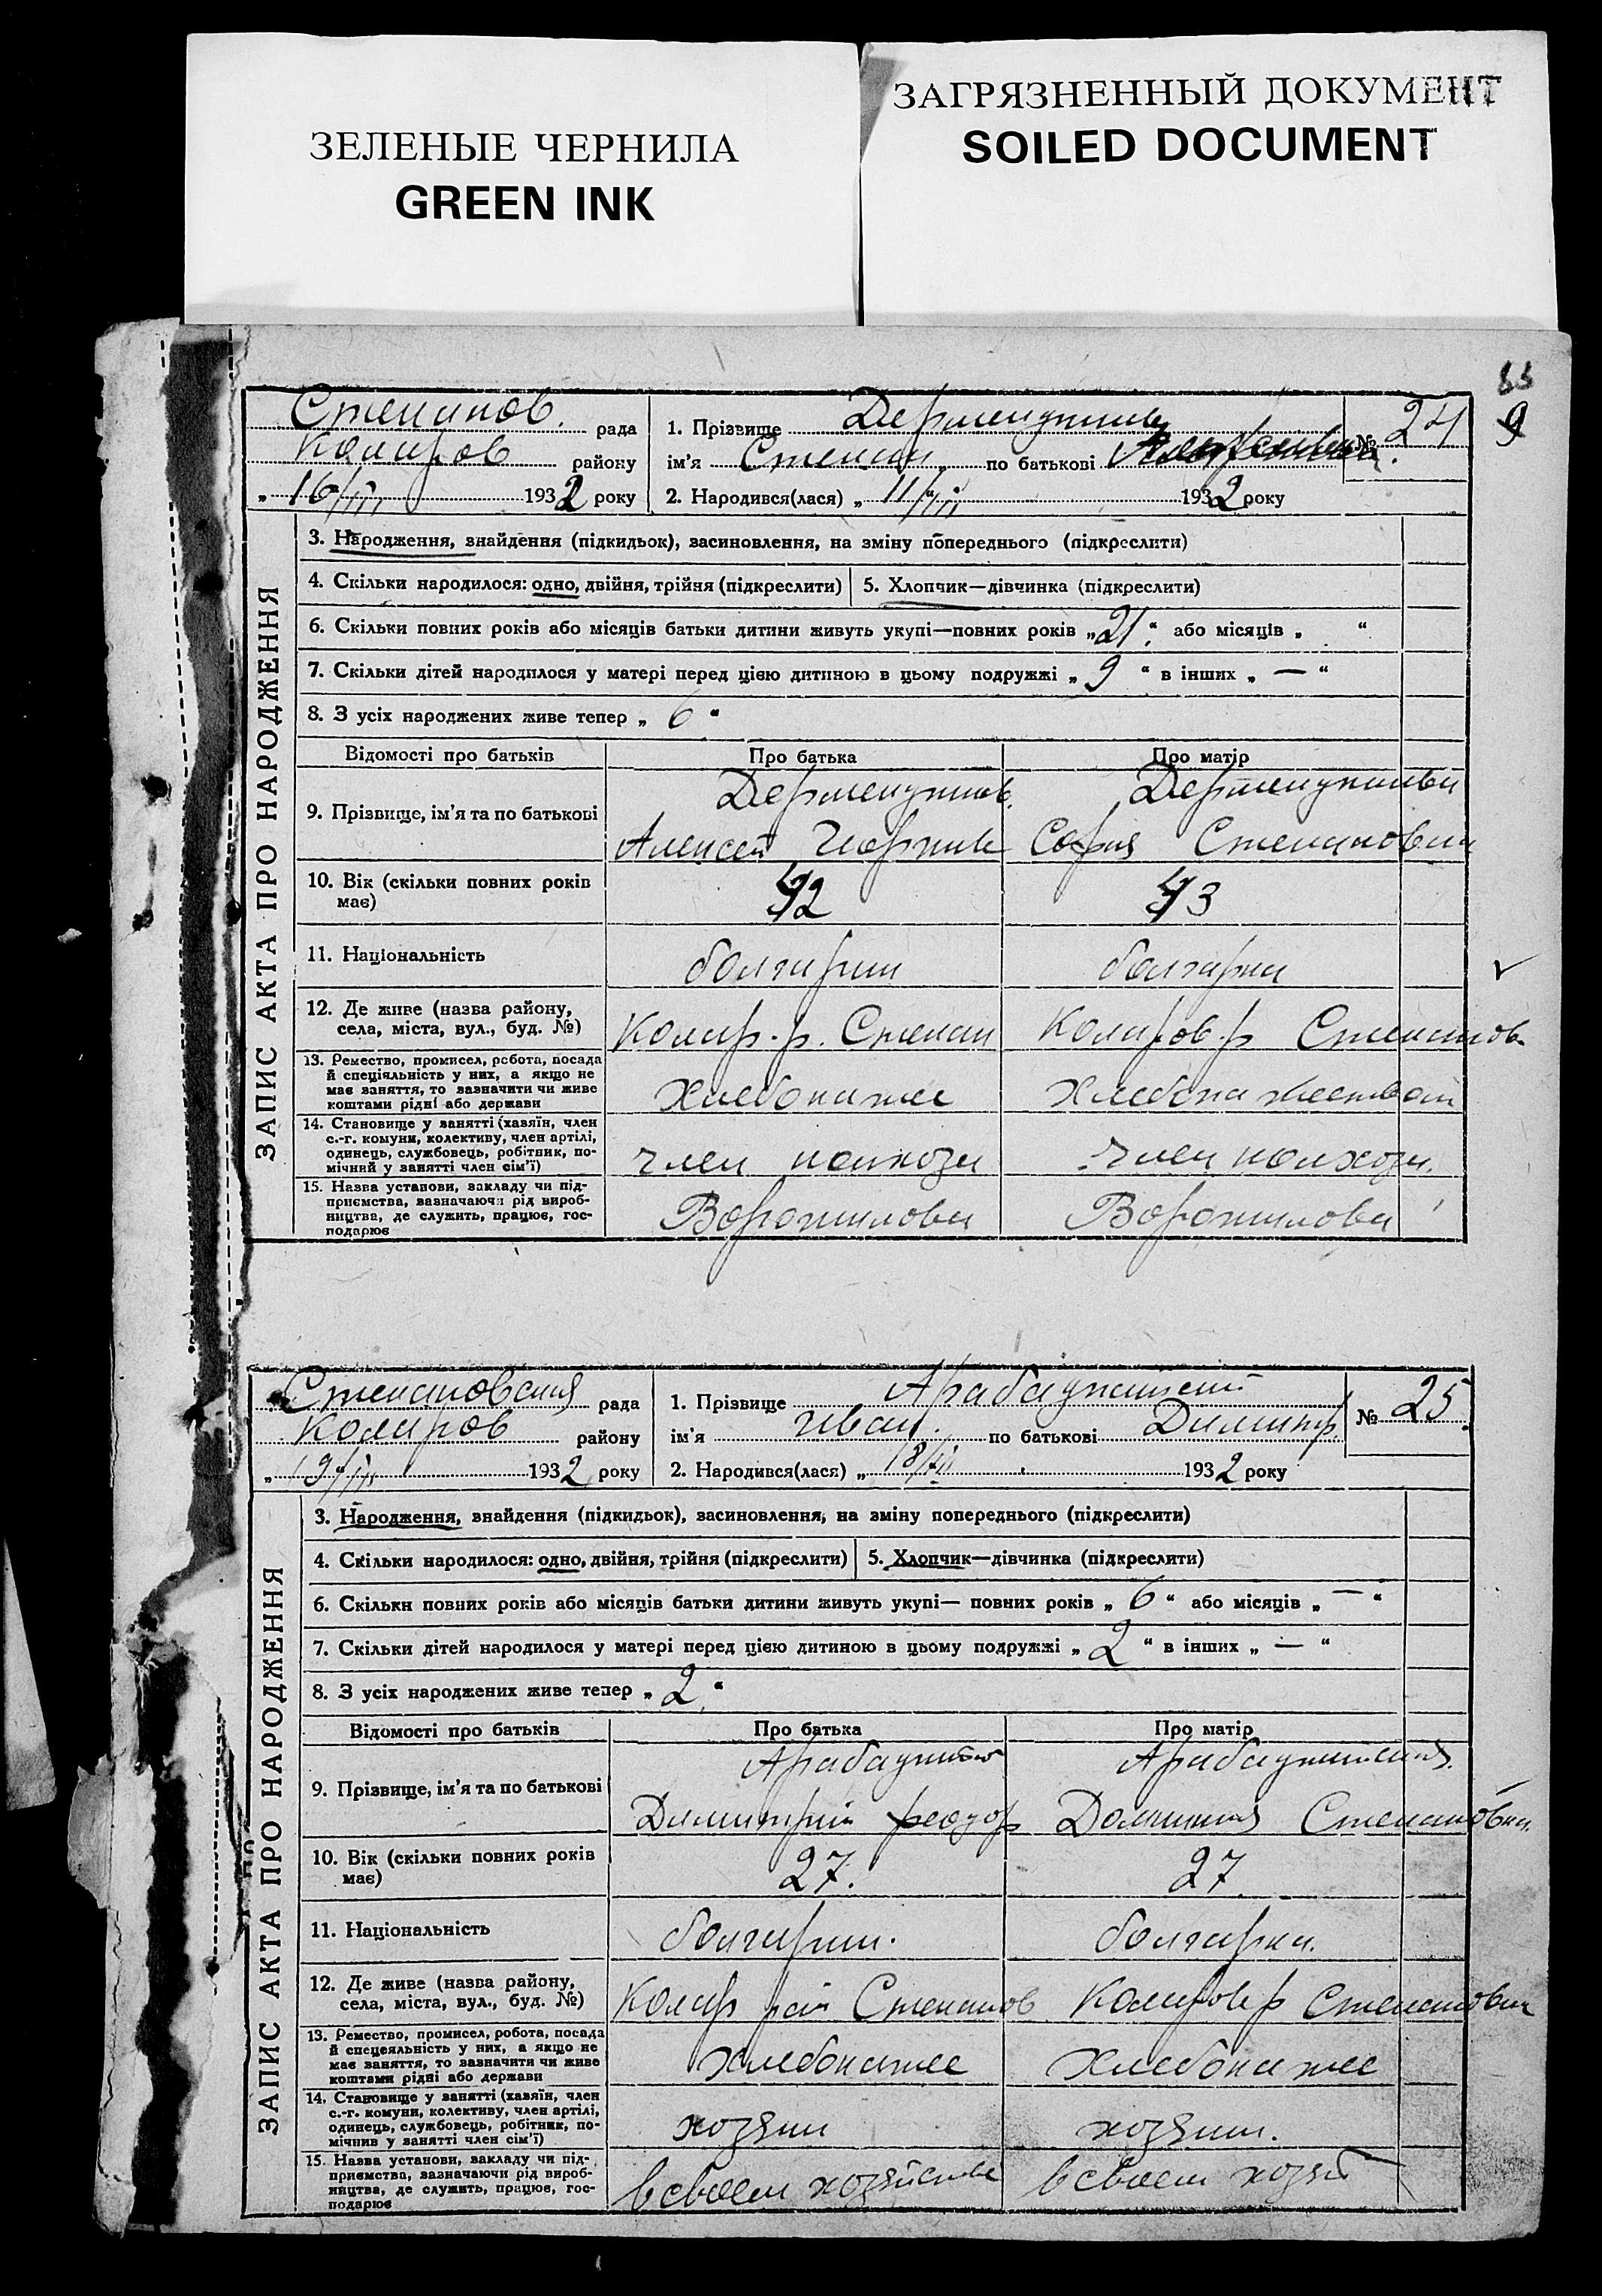 ЗЕЛЕНЫЕ ЧЕРНИЛА
GREEN INK
ЗАГРЯЗНЕННЫЙ ДОКУМЕНТ
SOILED DOCUMENT
83
9
Степанов. рада
Коларов району
„16/III 1932 року
1. Прізвище
ім'я Степан по батькові
№ 24
2. Народився(лася) „11/III 1932 року
ЗАПИС АКТА ПРО НАРОДЖЕННЯ
3. Народження, знайдення (підкидьок), засиновлення, на зміну попереднього (підкреслити)
4. Скільки народилося: одно, двійня, трійня (підкреслити) 5. Хлопчик—дівчинка (підкреслити)
6. Скільки повних років або місяців батьки дитини живуть укупі—повних років „21“ або місяців „ “
7. Скільки дітей народилося у матері перед цією дитиною в цьому подружжі „ 9 “ в інших „ — “
8. З усіх народжених живе тепер „ 6 “
Відомості про батьків Про батька Про матір
9. Прізвище, ім'я та по батькові
Алексей София Степановна
10. Вік (скільки повних років має) 42 43
11. Національність болгарин болгарка
12. Де живе (назва району, села, міста, вул., буд. №) Колар. р. Степан Коларов р Степанов
13. Ремество, промисел, робота, посада
й спеціяльність у них, а якщо не
має заняття, то зазначити чи живе
коштами рідні або держави
14. Становище у занятті (хазяїн, член
с.-г. комуни, колективу, член артілі,
одинець, службовець, робітник, по-
мічний у занятті член сім'ї)
член колхоза член колхоза.
15. Назва установи, закладу чи під-
приємства, зазначаючи рід вироб-
ництва, де служить, працює, гос-
подарює
Ворошилова Ворошилова
Степановская рада
Коларов району
„19/III 1932 року
1. Прізвище Арабаджийский
ім'я Иван. по батькові Димитр.
№ 25.
2. Народився(лася) „ 18/III 1932 року
ЗАПИС АКТА ПРО НАРОДЖЕННЯ
3. Народження, знайдення (підкидьок), засиновлення, на зміну попереднього (підкреслити)
4. Скільки народилося: одно, двійня, трійня (підкреслити) 5. Хлопчик—дівчинка (підкреслити)
6. Скільки повних років або місяців батьки дитини живуть укупі— повних років „ 6 “ або місяців „ — “
7. Скільки дітей народилося у матері перед цією дитиною в цьому подружжі „ 2 “ в інших „ — “
8. З усіх народжених живе тепер „ 2 “
Відомості про батьків Про батька Про матір
9. Прізвище, ім'я та по батькові
Димитрий Федор Степановна.
10. Вік (скільки повних років має) 27. 27
11. Національність болгарин. болгарка.
12. Де живе (назва району, села, міста, вул., буд. №) Колар рай Степанов Коларов р Степановка
13. Ремество, промисел, робота, посада
й спецеяльність у них, а якщо не
має заняття, то зазначити чи живе
коштами рідні або держави
14. Становище у занятті (хазяїн, член
с.-г. комуни, колективу, член артілі,
одинець, службовець, робітник, по-
мічнив у занятті член сім'ї)
хозяин хозяин.
15. Назва установи, закладу чи під-
приємства, зазначаючи рід вироб-
ництва, де служить, працює, гос-
подарює
в своем хозяйстве в своем хозяй